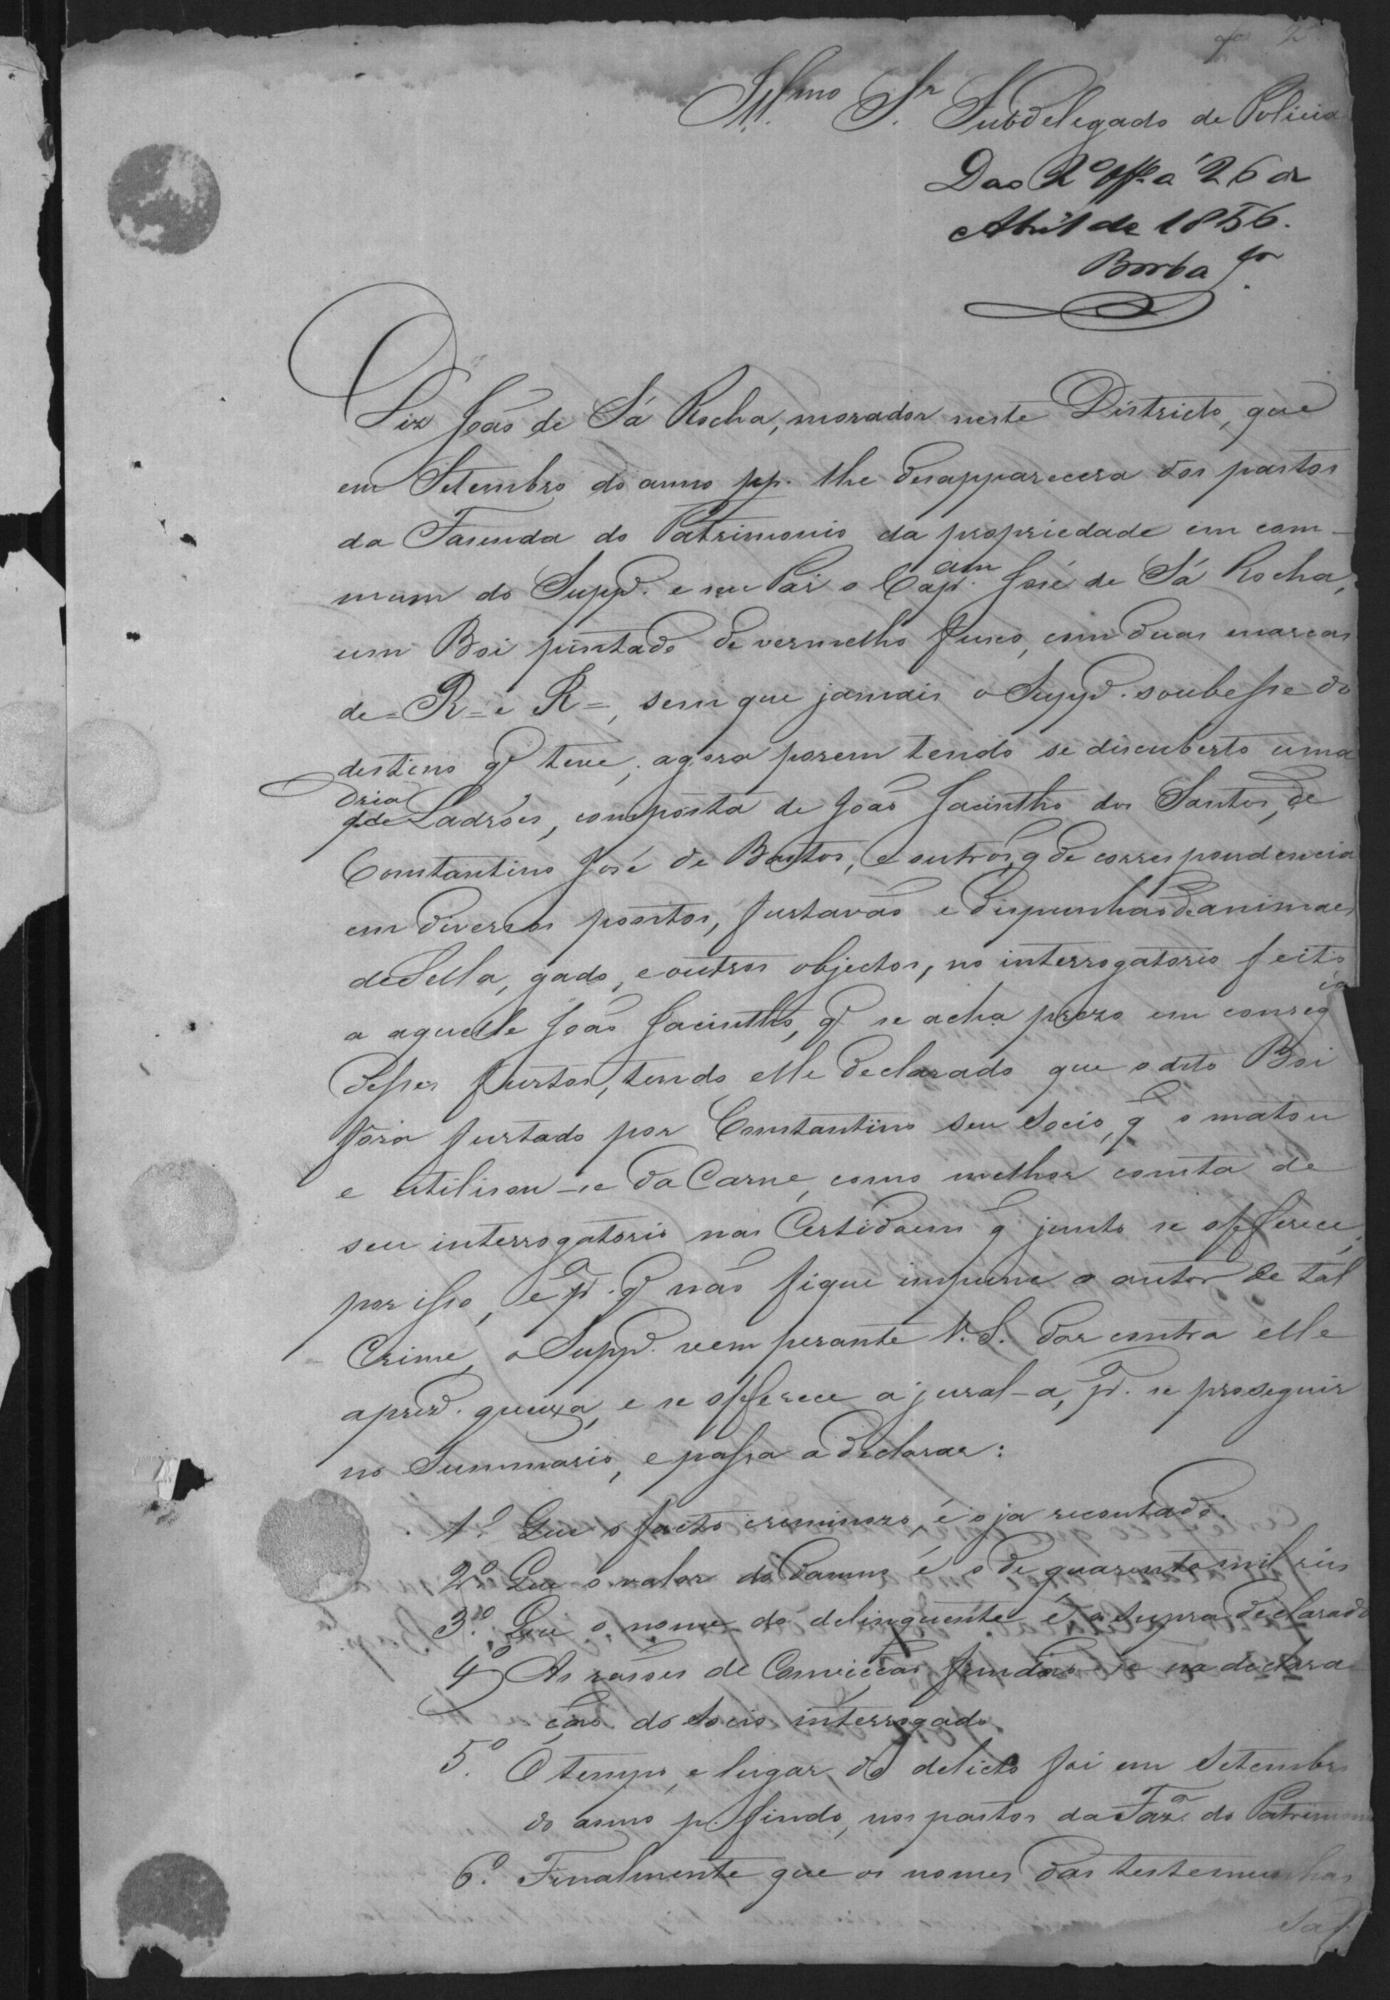 fs 2
Illmo Sr Subdelegado de Policia
Das 2º Offº a 26 de
Abril de 1856.
Borba Jor
Diz João de Sá Rocha, morador neste Districto, que
em Setembro do anno pp. lhe desapparecera dos pastos
da Fasenda do Patrimonio da propriedade em com-
mum do Suppe. e seu Pai o Capam. José de Sá Rocha,
um Boi pintado de vermelho fusco, com duas marcas
de = R = e R =, sem que jamais o Suppe. soubesse do
destino qe teve; agora porem tendo se discuberto uma
qdria de Ladrões, composta de João Jacintho dos Santos, de
Constantino José de Bastos, e outros, q de correspondencia
em diversos pontos, furtavão e dispunhão de animaes
de Sella, gado, e outros objectos, no interrogatorio feito
a aquelle João Jacintho, qe se acha prezo em conseqcia
desses furtos, tendo elle declarado que o dito Boi
fora furtado por Constantino seu socio, q o matou
e utilisou-se da Carne, como melhor consta de
seu interrogatorio nas Certidoens q junto se offerece,
por isso, e pa. qe não fique impune o autor de tal
Crime, o Suppe. vem perante V. S. dar contra elle
a prese. queixa, e se offerece a jural-a, pa. se proseguir
no Summario, e passa a declarar:
1º. Que o facto criminozo, é o ja recontado.
2º. Que o valor do Damno é o de quarenta mil reis
3º. Que o nome do delinquente é o supra declarado
4º As rasões de Convicção fundão-se na declara
ção do socio interrogado.
5º. O tempo, e lugar do delicto foi em Setembro
do anno p. findo, nos pastos da Faza. do Patrimonio
6º. Finalmente que os nomes das testemunhas
São